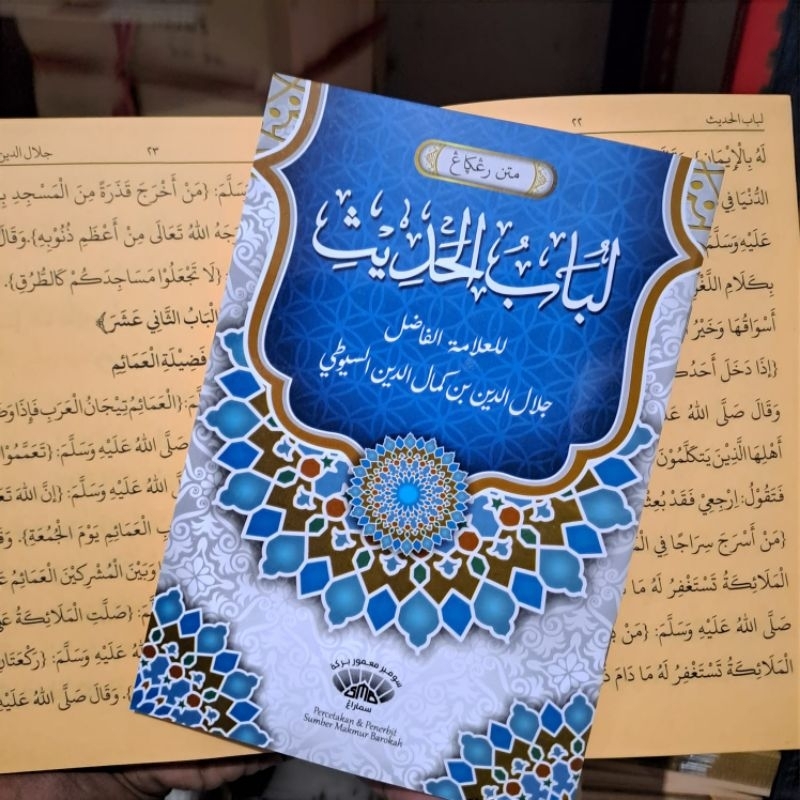 متن رڠكاڠ
لُبَابُ الْحَدِيْثِ
للعلامة الفاضل
جلال الدين بن كمال الدين السيوطي
سومبر معمور بركة
SMB
سماراڠ
Percetakan & Penerbit
Sumber Makmur Barokah
لباب الحديث ٢٢
لَهُ بِالْإِيْمَانِ}
الدُّنْيَا فِي
عَلَيْهِ وَسَلَّمَ
بِكَلَامِ اللَّغْوِ
أَسْوَاقُهَا وَخَيْرُ
{إِذَا دَخَلَ أَحَدُكُمْ
وَقَالَ صَلَّى اللهُ
أَهْلِهَا الَّذِيْنَ يَتَكَلَّمُوْنَ
فَتَقُوْلُ: اِرْجِعِيْ فَقَدْ بُعِثْتُ
{مَنْ أَسْرَجَ سِرَاجًا فِي
الْمَلَائِكَةُ تَسْتَغْفِرُ لَهُ مَا
صَلَّى اللهُ عَلَيْهِ وَسَلَّمَ: {مَنْ
الْمَلَائِكَةُ تَسْتَغْفِرُ لَهُ مَا دَامَ
٢٣ جلال الدين
وَسَلَّمَ: {مَنْ أَخْرَجَ قَذَرَةً مِنَ الْمَسْجِدِ
اللهُ تَعَالَى مِنْ أَعْظَمِ ذُنُوْبِهِ}. وَقَالَ
{لَا تَجْعَلُوْا مَسَاجِدَكُمْ كَالطُّرُقِ}.
الْبَابُ الثَّانِي عَشَرَ﴾
فَضِيْلَةِ الْعَمَائِمِ
{الْعَمَائِمُ تِيْجَانُ الْعَرَبِ فَإِذَا
صَلَّى اللهُ عَلَيْهِ وَسَلَّمَ: {تَعَمَّمُوْا
اللهُ عَلَيْهِ وَسَلَّمَ: {إِنَّ اللهَ
الْعَمَائِمِ يَوْمَ الْجُمُعَةِ}.
وَبَيْنَ الْمُشْرِكِيْنَ الْعَمَائِمُ
{صَلَّتِ الْمَلَائِكَةُ
اللهُ عَلَيْهِ وَسَلَّمَ: {رَكْعَتَانِ
وَقَالَ صَلَّى اللهُ عَلَيْهِ